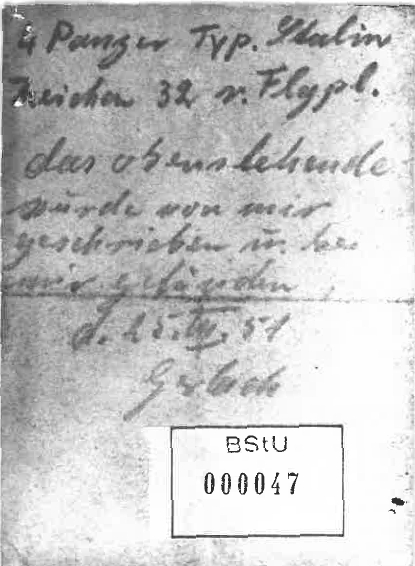 4 Panzer Typ. Stalin
Zeichen 32 v. Flugpl.
das obenstehende
wurde von mir
geschrieben u. bei
mir gefunden
d. 25. 51
BStU
000047